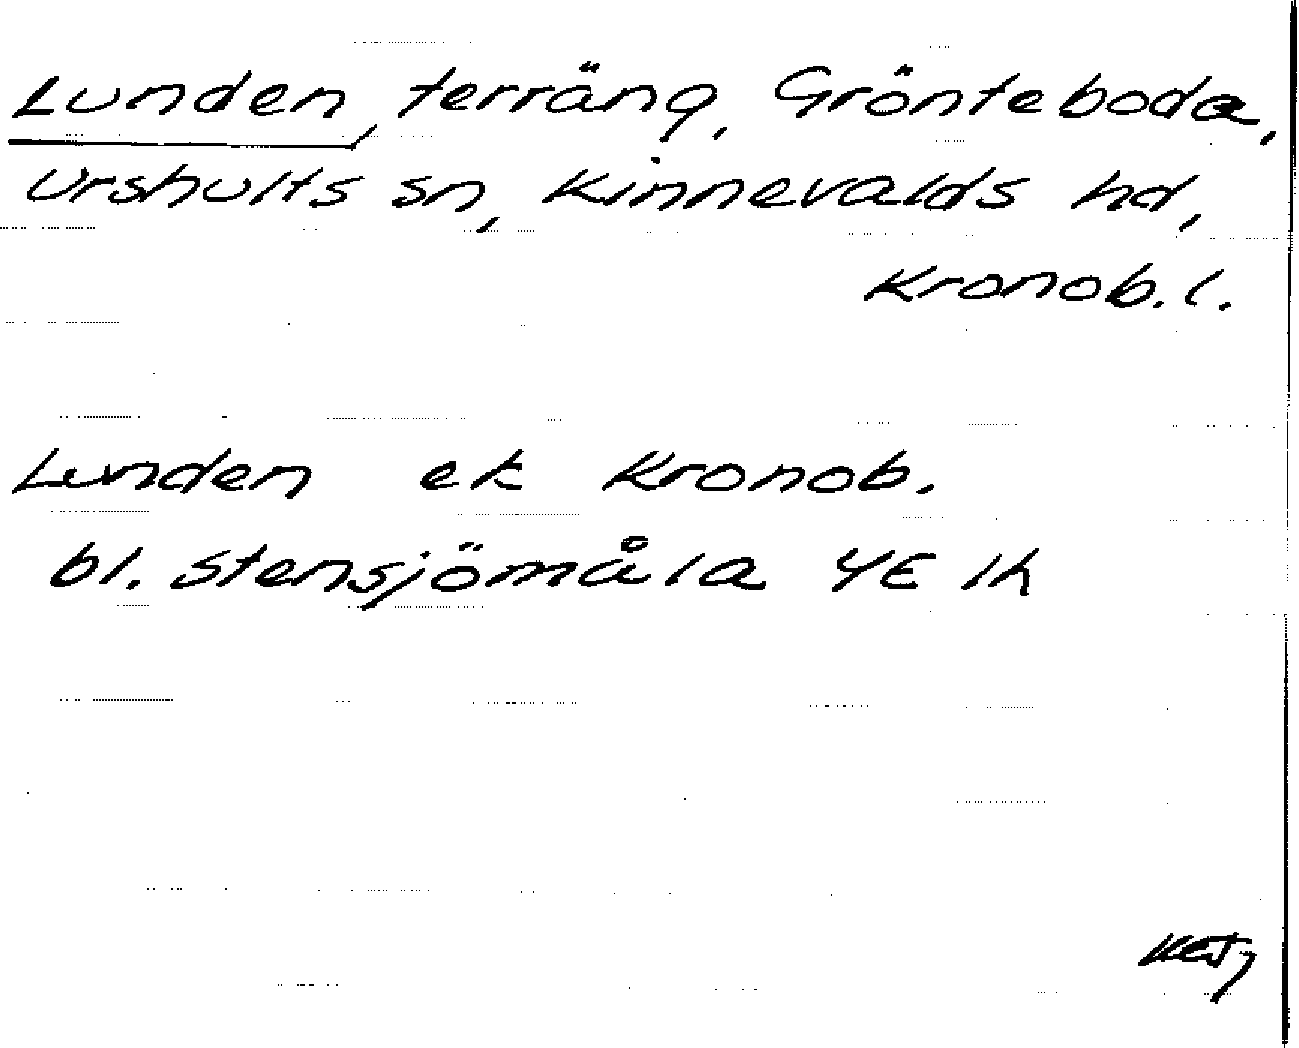 Lunden, terräng, Grönteboda,
Urshults sn, Kinnevalds hd,
Kronob. l.
Lunden ek Kronob.
bl. Stensjömåla 4E 1h